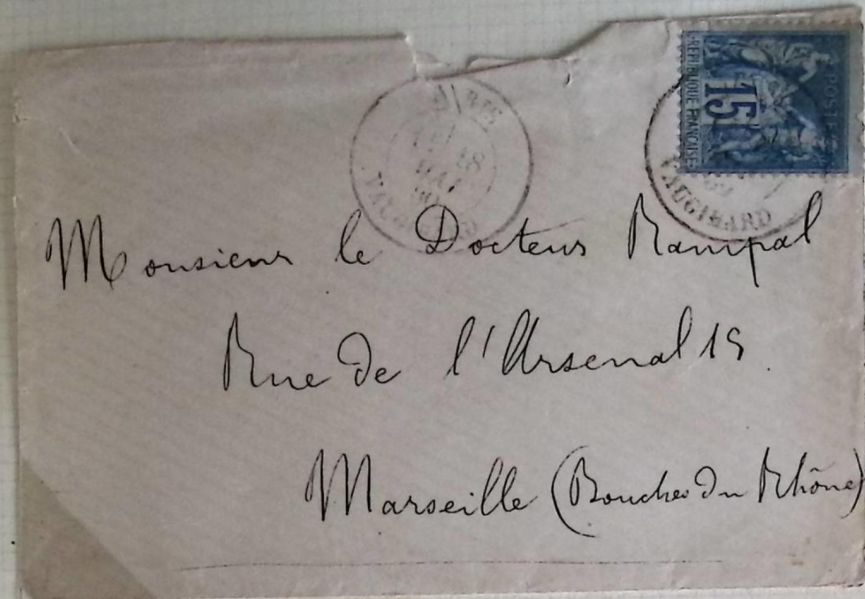 PARIS
18
MAI
VAUGIRARD
REPUBLIQUE FRANÇAISE
15
POSTES
VAUGIRARD
Monsieur le Docteur Rampal
Rue de l'Arsenal 19
Marseille (Bouches du Rhône)